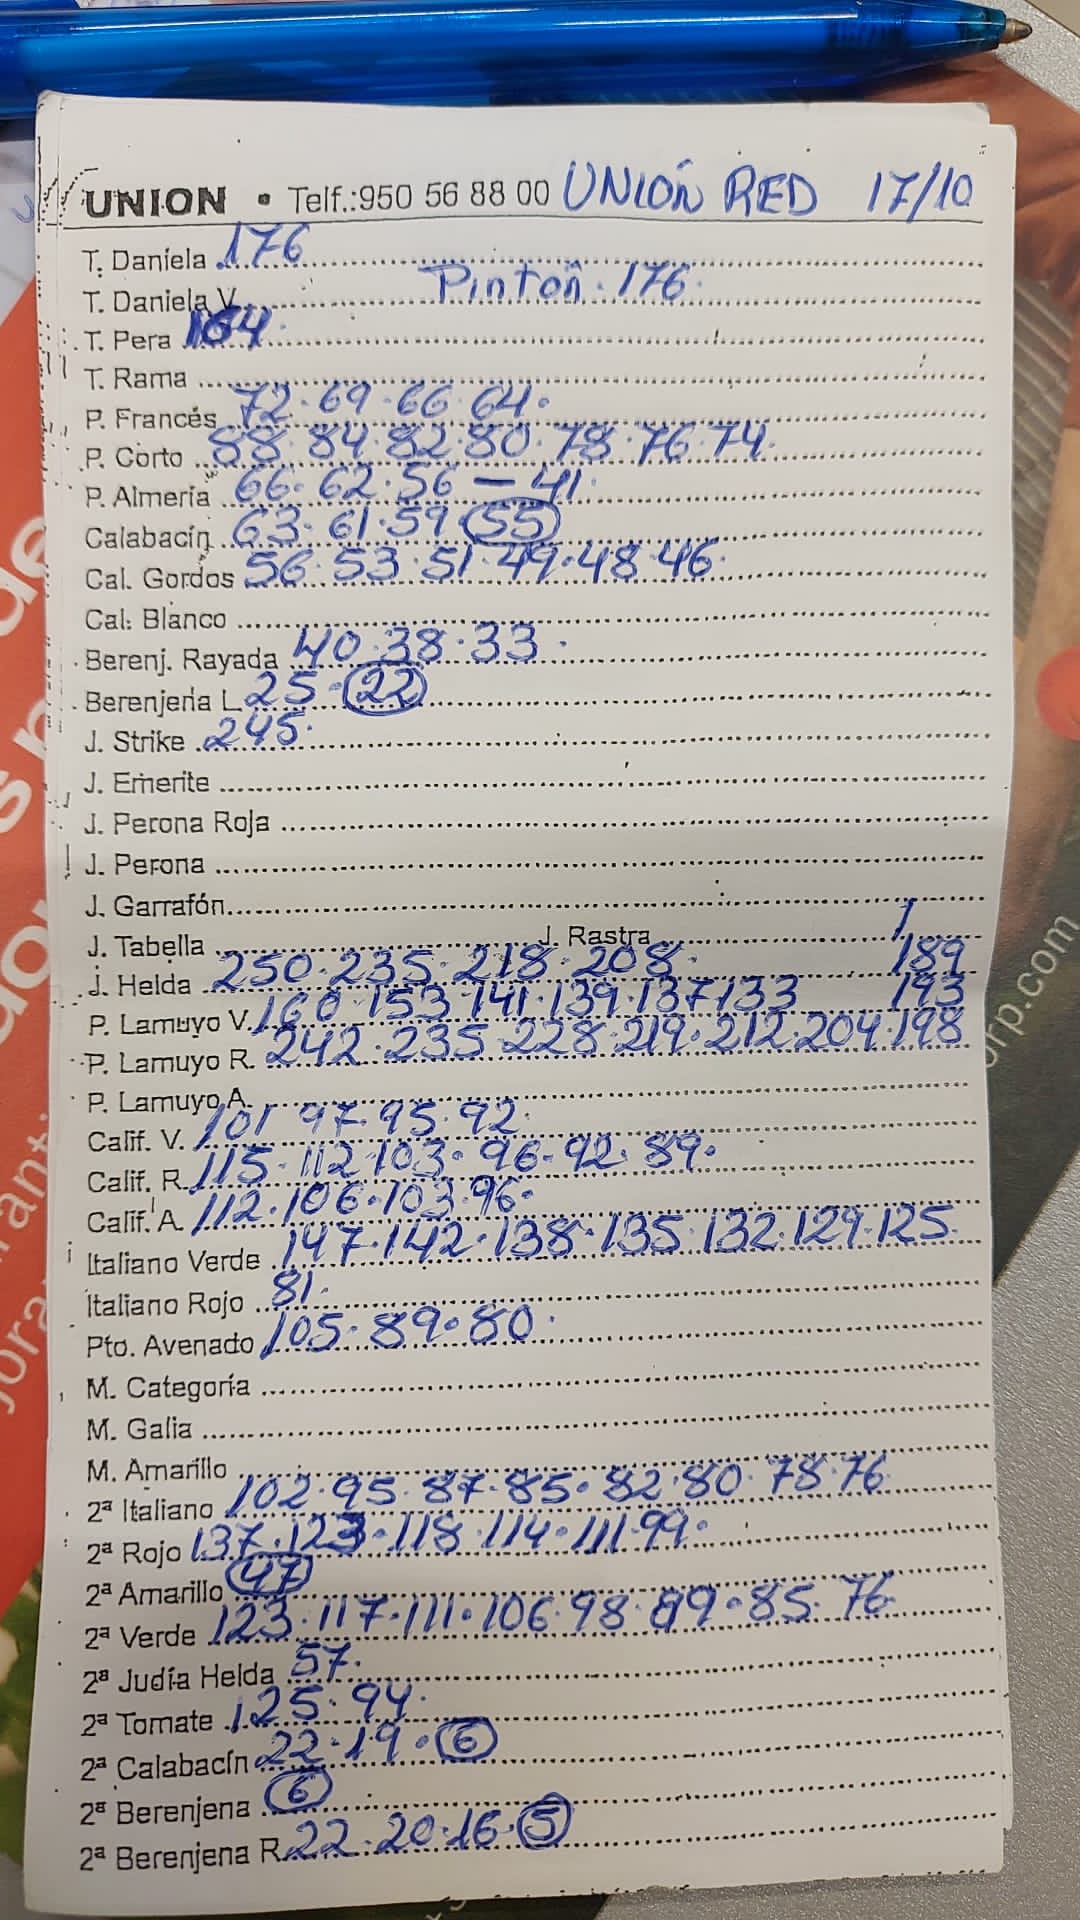 UNION • Telf.:950 56 88 00 UNIÓN RED 17/10
T. Daniela 176
T. Daniela V. Pintón. 176.
T. Pera 164.
T. Rama
P. Francés 72.69.66.64.
P. Corto 88.84.82.80.78.76.74.
P. Almería 66.62.56 — 41.
Calabacín 63.61.59.55
Cal. Gordos 56.53.51.49.48.46.
Cal. Blanco
Berenj. Rayada 40.38.33.
Berenjena L 25.22
J. Strike 245.
J. Emerite
J. Perona Roja
J. Perona
J. Garrafón
J. Tabella J. Rastra
J. Helda 250.235.218.208. 189
P. Lamuyo V. 160.153.141.139.137.133 193
P. Lamuyo R. 242.235.228.219.212.204.198
P. Lamuyo A.
Calif. V. 101.97.95.92.
Calif. R. 115.112.103.96.92.89.
Calif. A. 112.106.103.96.
Italiano Verde 147.142.138.135.132.129.125.
Italiano Rojo 81.
Pto. Avenado 105.89.80.
M. Categoría
M. Galia
M. Amarillo
2ª Italiano 102.95.87.85.82.80.78.76
2ª Rojo 137.123.118.114.111.99.
2ª Amarillo 47
2ª Verde 123.117.111.106.98.89.85.76.
2ª Judía Helda 57.
2ª Tomate 125.94.
2ª Calabacín 22.19.6
2ª Berenjena 6
2ª Berenjena R. 22.20.16.5
orp.com